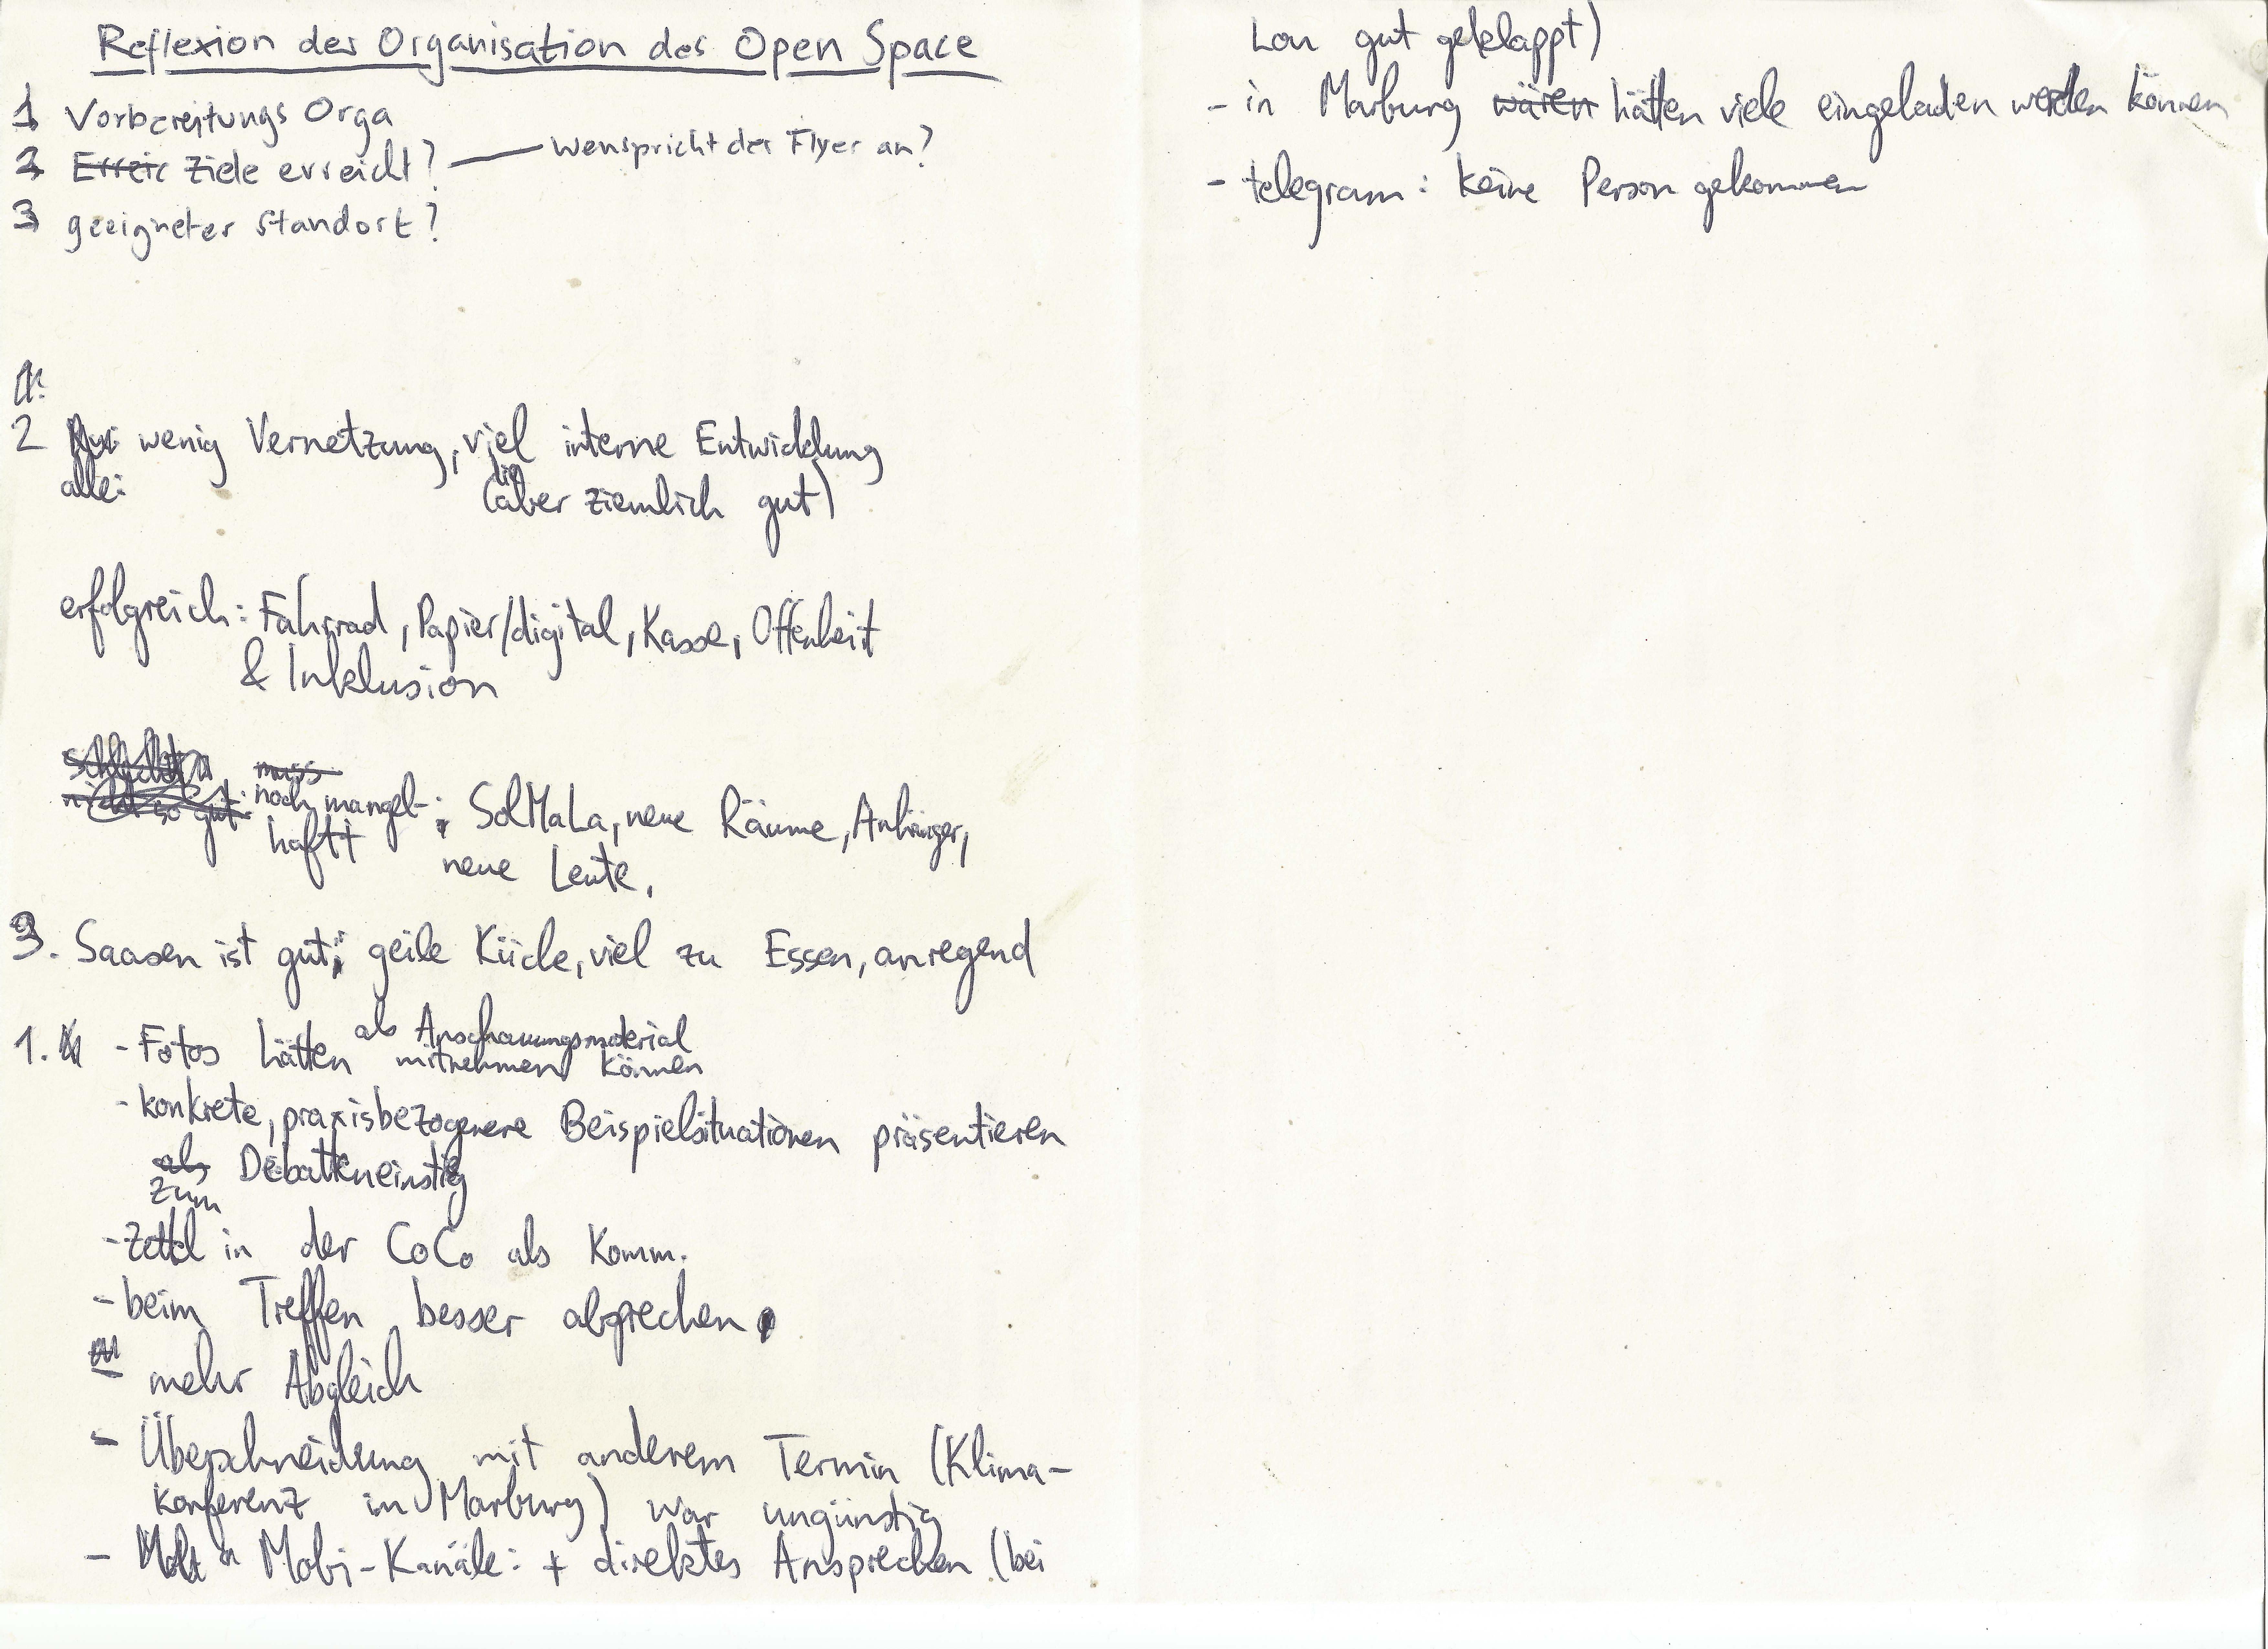 Reflexion der Organisation des Open Space
1 Vorbereitungs Orga
2 Erreic Ziele erreicht? — wenspricht der Flyer an?
3 geeigneter Standort?
1.
2 wenig Vernetzung, viel interne Entwicklung
alle: (die aber ziemlich gut)
erfolgreich: Fahrrad, Papier/digital, Kasse, Offenheit
& Inklusion
schlecht muss
nicht so gut: noch mangel- : SolMaLa, neue Räume, Anhänger,
haft neue Leute,
3. Saasen ist gut; geile Küche, viel zu Essen, anregend
1. - Fotos hätten als Anschauungsmaterial
mitnehmen können
- konkrete, praxisbezogenere Beispielsituationen präsentieren
als Debatteneinstieg
zum
- Zettel in der CoCo als Komm.
- beim Treffen besser absprechen
- mehr Abgleich
- Überschneidung mit anderem Termin (Klima-
konferenz in Marburg) war ungünstig
- Mobi-Kanäle: + direktes Ansprechen (bei
Lou gut geklappt)
- in Marburg wären hätten viele eingeladen werden können
- telegram: keine Person gekommen